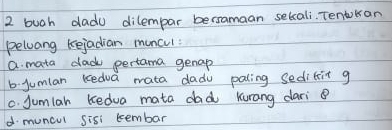 2 buah dadu dilempar bersamaan sekali. Tentukan
peluang kejadian muncul:
a. mata dadu pertama genap
b. Jumlah kedua mata dadu paling sedikit 9
c. Jumlah kedua mata dadu kurang dari 8
d. muncul sisi kembar